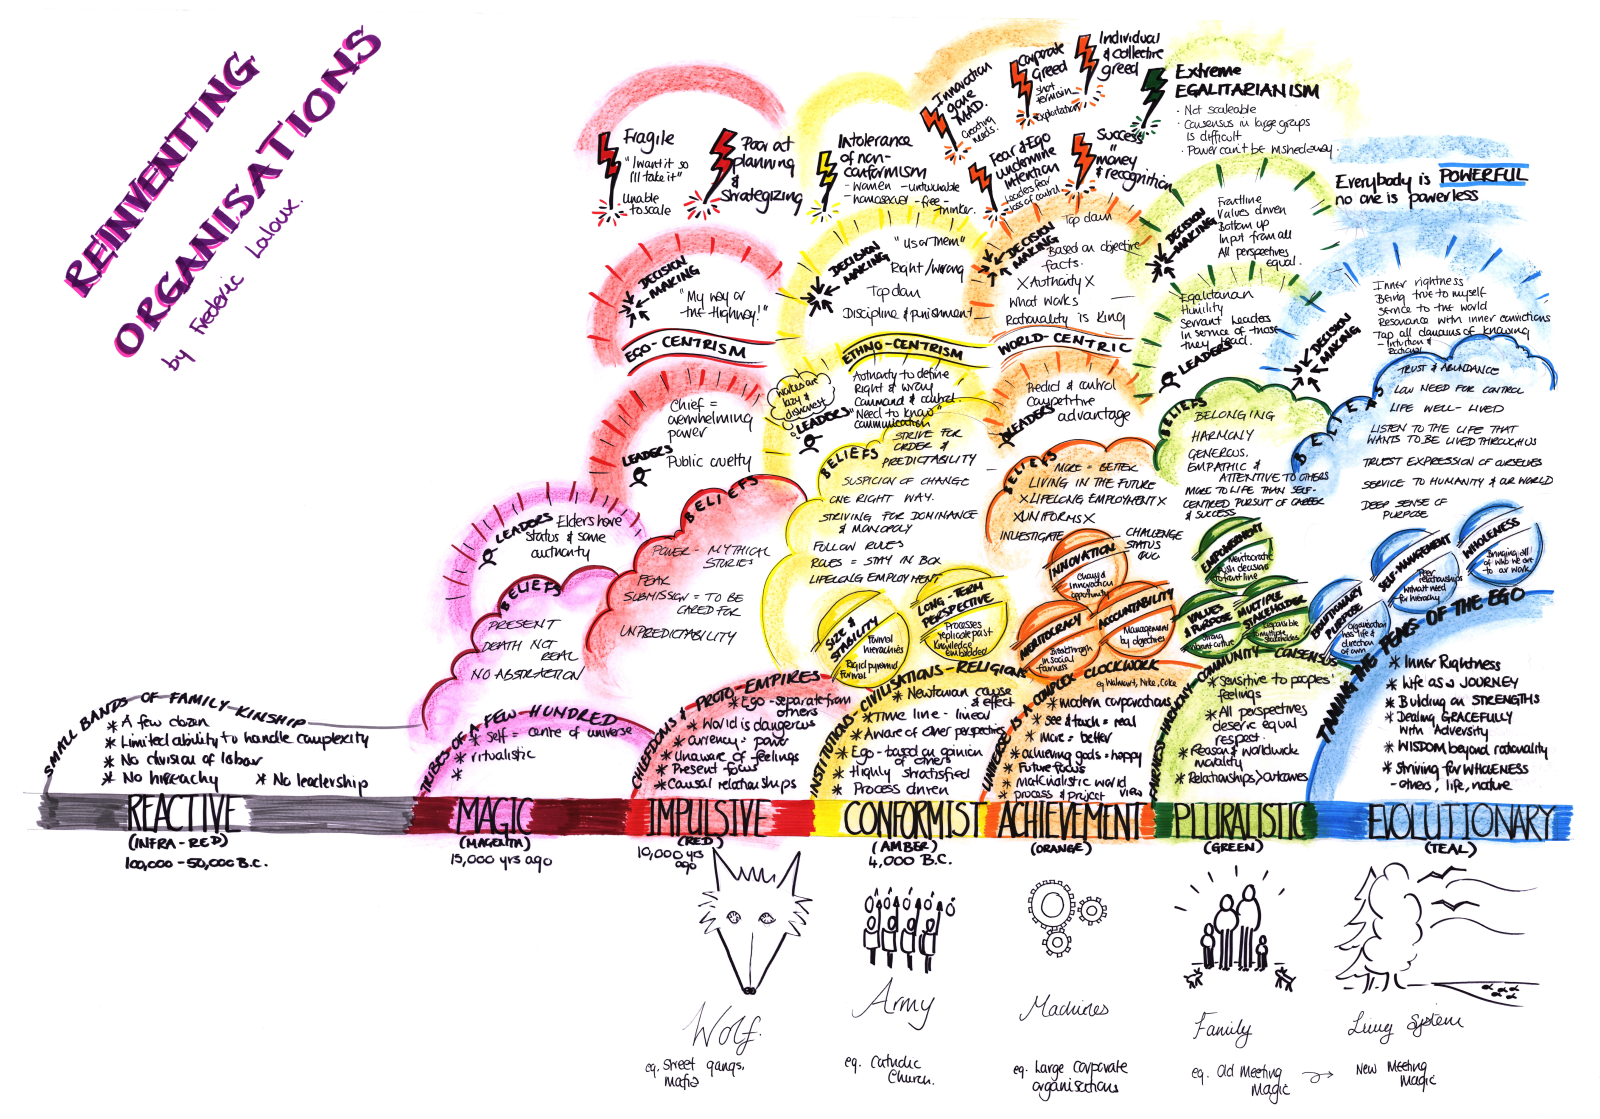 REINVENTING
ORGANISATIONS
by Frederic Laloux.
SMALL BANDS OF FAMILY KINSHIP
* A few dozen
* Limited ability to handle complexity
* No division of labour
* No hierachy
* No leadership
REACTIVE
(INFRA-RED)
100,000 - 50,000 B.C.
LEADERS
Elders have
status & some
authority
BELIEFS
PRESENT
DEATH NOT
REAL
NO ABSTRACTION
TRIBES OF A FEW HUNDRED
* Self = centre of universe
* ritualistic
*
MAGIC
(MAGENTA)
15,000 yrs ago
Fragile
"I want it so
I'll take it"
Unable
to scale
Poor at
planning
&
strategizing
DECISION
MAKING
"My way or
the Highway!"
EGO-CENTRISM
Chief =
overwhelming
power
LEADERS
Public cruelty
BELIEFS
POWER - MYTHICAL
STORIES
FEAR
SUBMISSION = TO BE
CARED FOR
UNPREDICTABILITY
CHIEFDOMS & PROTO-EMPIRES
* Ego - separate from
others
* World is dangerous
* currency = power
* Unaware of feelings
* Present focus
* Causal relationships
IMPULSIVE
(RED)
10,000 yrs
ago
Wolf.
eg. Street gangs,
mafia
Intolerance
of non-
conformism
- women - untouchable
- homosexual - free-
thinker.
DECISION
MAKING
"us or them"
Right/wrong
Top down
Discipline & punishment
ETHNO-CENTRISM
workers are
lazy &
dishonest
LEADERS
Authority to define
Right & wrong
Command & control
"Need to know"
communication
BELIEFS
STRIVE FOR
ORDER &
PREDICTABILITY
SUSPICION OF CHANGE
ONE RIGHT WAY.
STRIVING FOR DOMINANCE
& MONOPOLY
FOLLOW RULES
ROLES = STAY IN BOX
LIFELONG EMPLOYMENT
SIZE &
STABILITY
Formal
hierarchies
Rigid pyramid,
Formal
LONG-TERM
PERSPECTIVE
Processes
replicate past
Knowledge
embedded
INSTITUTIONS - CIVILISATIONS - RELIGION
* Newtonian cause
& effect
* Time line - linear
* Aware of other perspectives
* Ego - based on opinion
of others
* Highly stratified
* Process driven
CONFORMIST
(AMBER)
4,000 B.C.
Army
eg. Catholic
Church.
Innovation
gone
MAD.
Creating
needs.
Corporate
Greed
short
termism
Exploitation
Individual
& collective
greed
Fear & Ego
undermine
intention
Leaders fear
loss of control
Success
=
money
& recognition
DECISION
MAKING
Top down
Based on objective
facts.
X Authority X
What works
Rationality is King
WORLD-CENTRIC
Predict & control
Competitive
advantage
LEADERS
BELIEFS
MORE = BETTER
LIVING IN THE FUTURE
X LIFELONG EMPLOYMENT X
X UNIFORMS X
INVESTIGATE
CHALLENGE
STATUS
QUO
INNOVATION
Change &
innovation
opportunity
MERITOCRACY
Breakthrough
in social
fairness
ACCOUNTABILITY
Management
by objectives
UNIVERSE IS A COMPLEX CLOCKWORK
eg Walmart, Nike, Coke
* modern corporations
* see & touch = real
* more = better
* achieving goals = happy
* Future focus
* Materialistic world
* process & project view
ACHIEVEMENT
(ORANGE)
Machines
eg. Large Corporate
organisations
Extreme
EGALITARIANISM
· Not scaleable
· Consensus in large groups
is difficult
· Power can't be wished away.
DECISION
MAKING
Frontline
Values driven
Bottom up
Input from all
All perspectives
equal.
Egalitarian
Humility
Servant Leaders
in service of those
they lead.
LEADERS
BELIEFS
BELONGING
HARMONY
GENEROUS.
EMPATHIC &
ATTENTIVE TO OTHERS
MORE TO LIFE THAN SELF-
CENTRED PURSUIT OF CAREER
& SUCCESS
EMPOWERMENT
Meritocratic
Push decisions
to front line
VALUES
& PURPOSE
Strong
vibrant culture
MULTIPLE
STAKEHOLDER
Responsible
to multiple
stakeholders
FAIRNESS-HARMONY-COMMUNITY-CONSENSUS
* Sensitive to peoples'
feelings
* All perspectives
deserve equal
respect.
* Reason & worldwide
morality
* Relationships > outcomes
PLURALISTIC
(GREEN)
Family
eg. Old Meeting
Magic
Everybody is POWERFUL
no one is powerless
DECISION
MAKING
Inner rightness
Being true to myself
Service to the world
Resonance with inner convictions
Tap all domains of knowing
- Intuition &
Rational
BELIEFS
TRUST & ABUNDANCE
LOW NEED FOR CONTROL
LIFE WELL-LIVED
LISTEN TO THE LIFE THAT
WANTS TO BE LIVED THROUGH US
TRUEST EXPRESSION OF OURSELVES
SERVICE TO HUMANITY & OUR WORLD
DEEP SENSE OF
PURPOSE
EVOLUTIONARY
PURPOSE
Organisation
has life &
direction
of own
SELF-MANAGEMENT
Peer
relationships
without need
for hierarchy
WHOLENESS
Bringing all
of who we are
to our work
TAMING THE FEARS OF THE EGO
* Inner Rightness
* Life as a JOURNEY
* Building on STRENGTHS
* Dealing GRACEFULLY
with Adversity
* WISDOM beyond rationality
* Striving for WHOLENESS
- others, life, nature
EVOLUTIONARY
(TEAL)
Living System
New Meeting
Magic